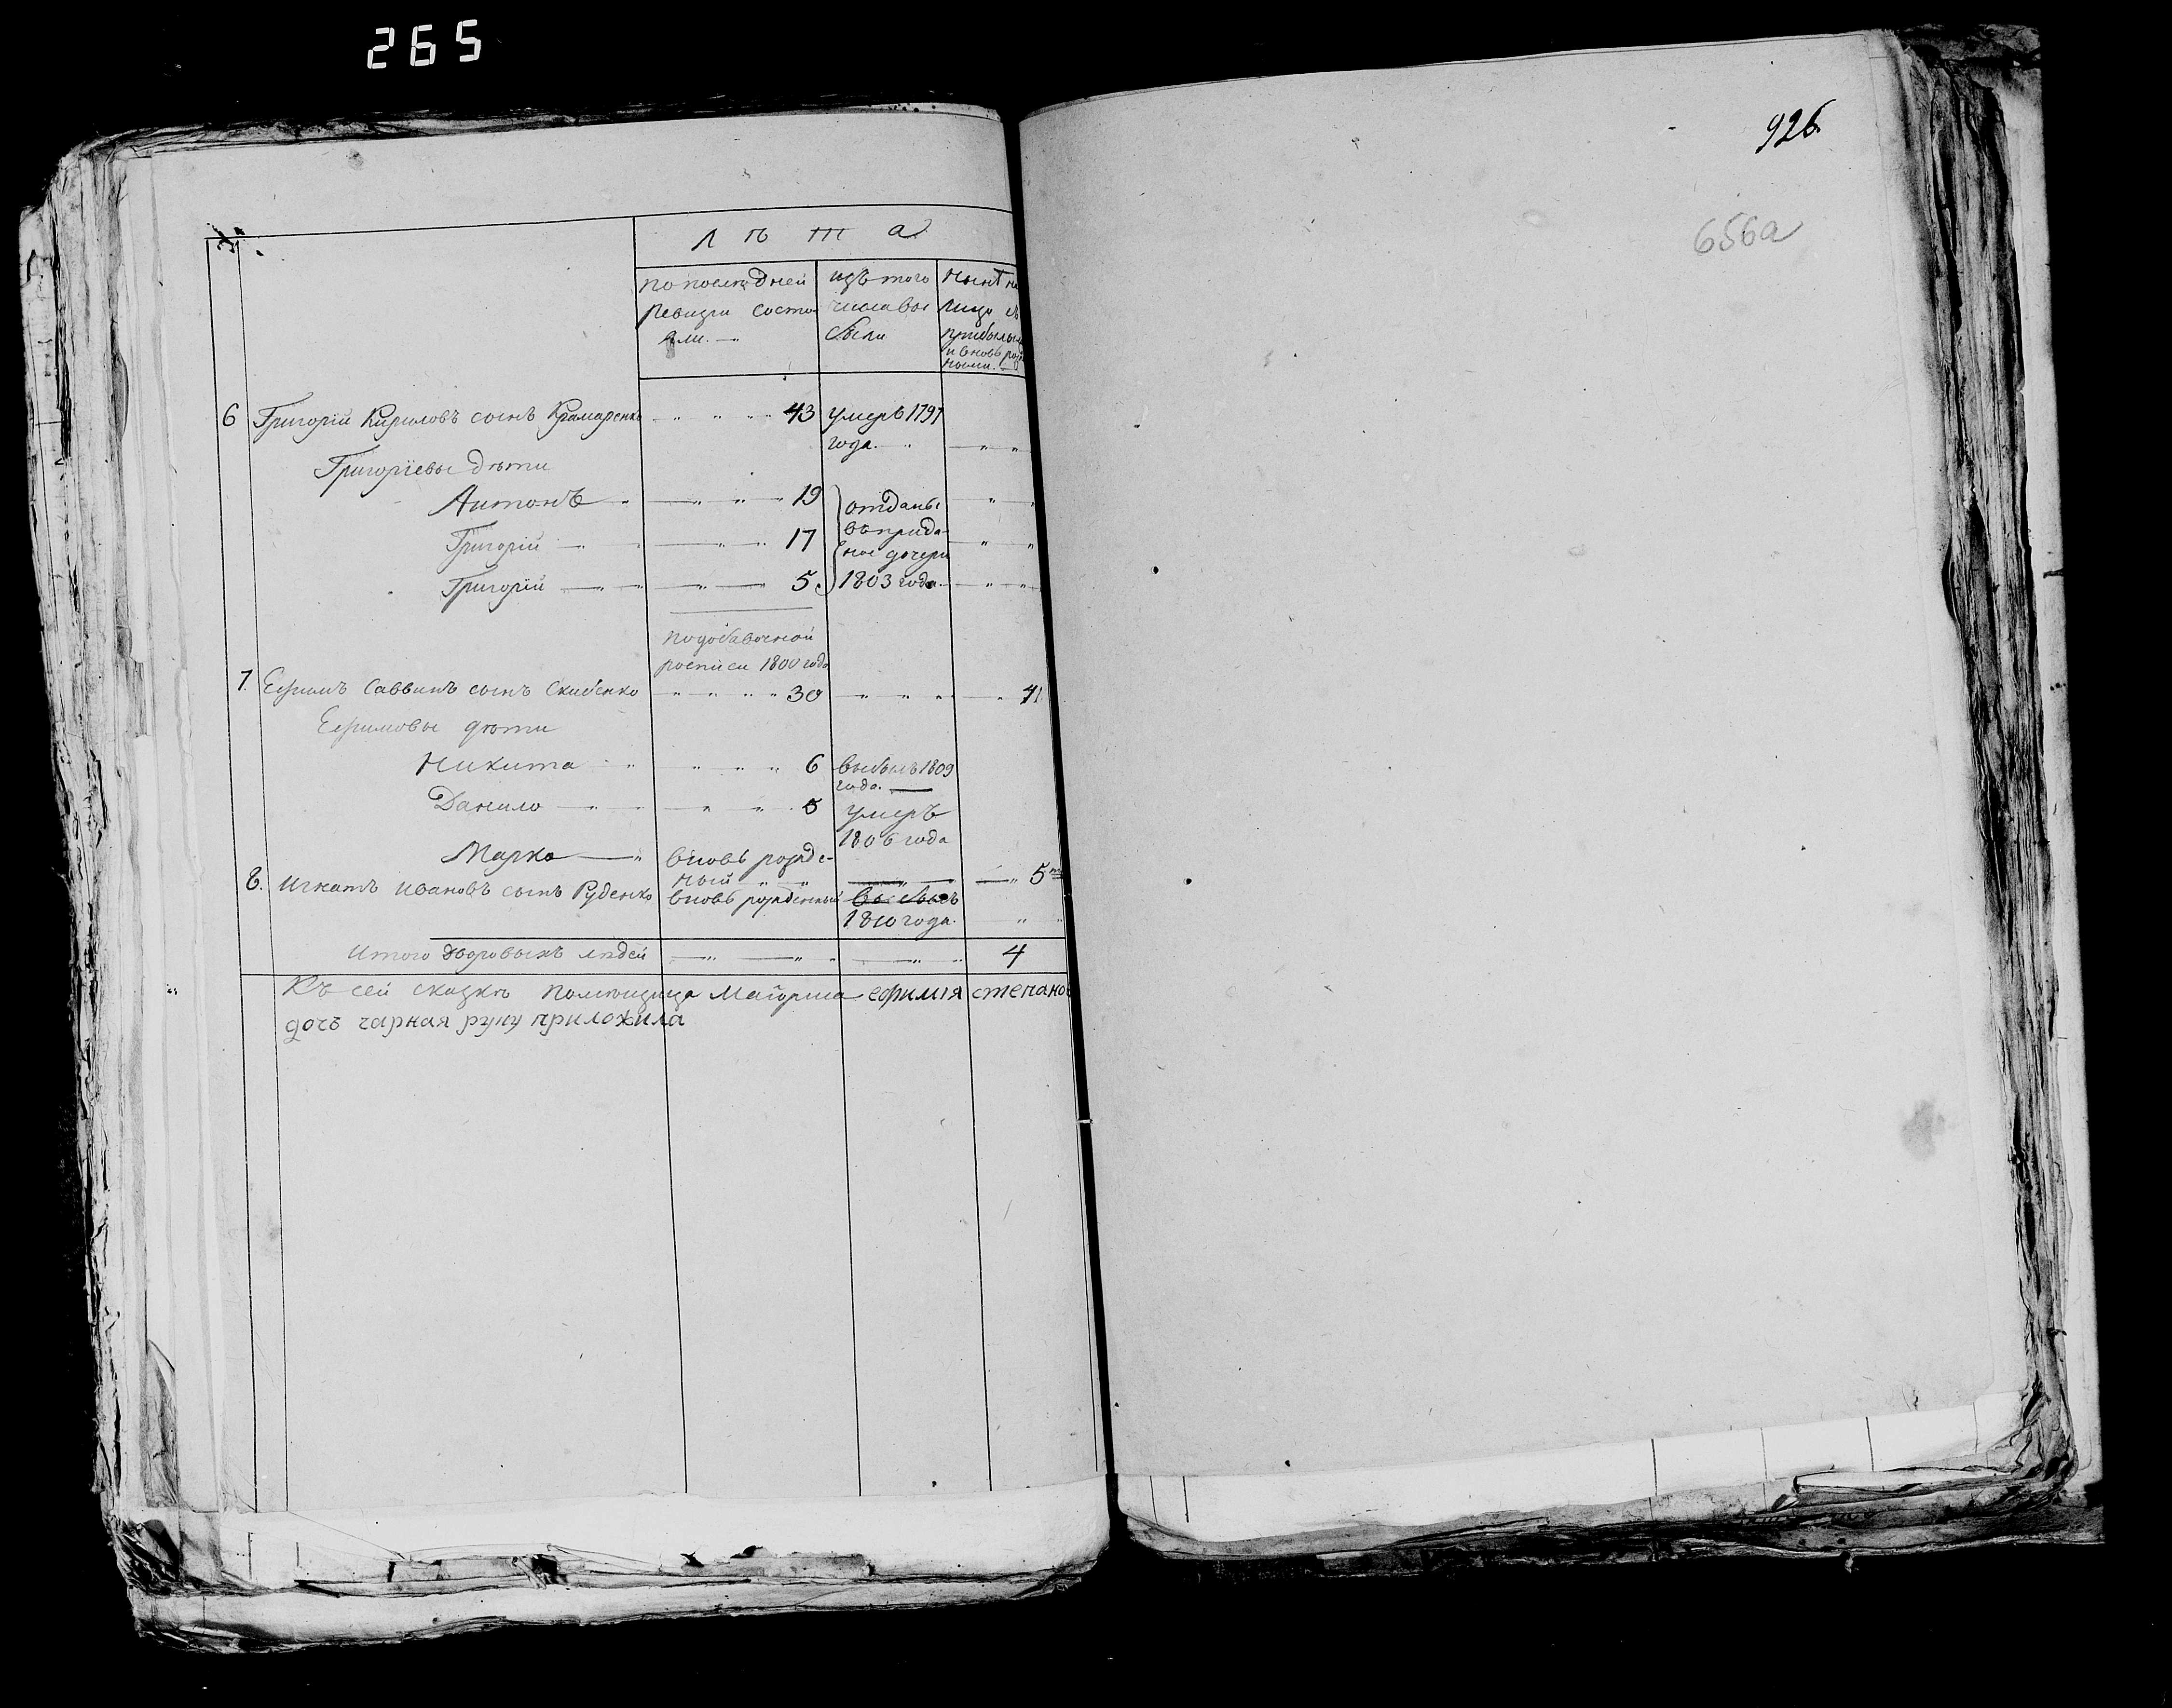 265
926
656а
№
лѣта
по последней
ревизіи состо
яли.
изъ того
числа вы
были
Нынѣ на
лицо съ
прибылы
и вновь рож
ными.
6 Григорій Кириловъ сынъ Крамаренко 43 умеръ 1797
года.
Григоріевы дѣти
Антонъ 19 отданы
Григорій 17 въ прида
ное дочери
Григорій 5. 1803 года.
по добавочной
росписи 1800 года
7. Ефимъ Саввинъ сынъ Скибенко 30 41
Ефимовы дѣти
Никита 6 выбылъ 1809
года.
Данило 5 умеръ
1806 года
Марко вновь рожде-
ный 5
8. Игнатъ Ивановъ сынъ Руденко вновь рожденный выбылъ
1810 года.
Итого дворовыхъ людей 4
Къ сей сказкѣ помѣщица Маіорша ефимія степанов
дочь чарная руку приложила